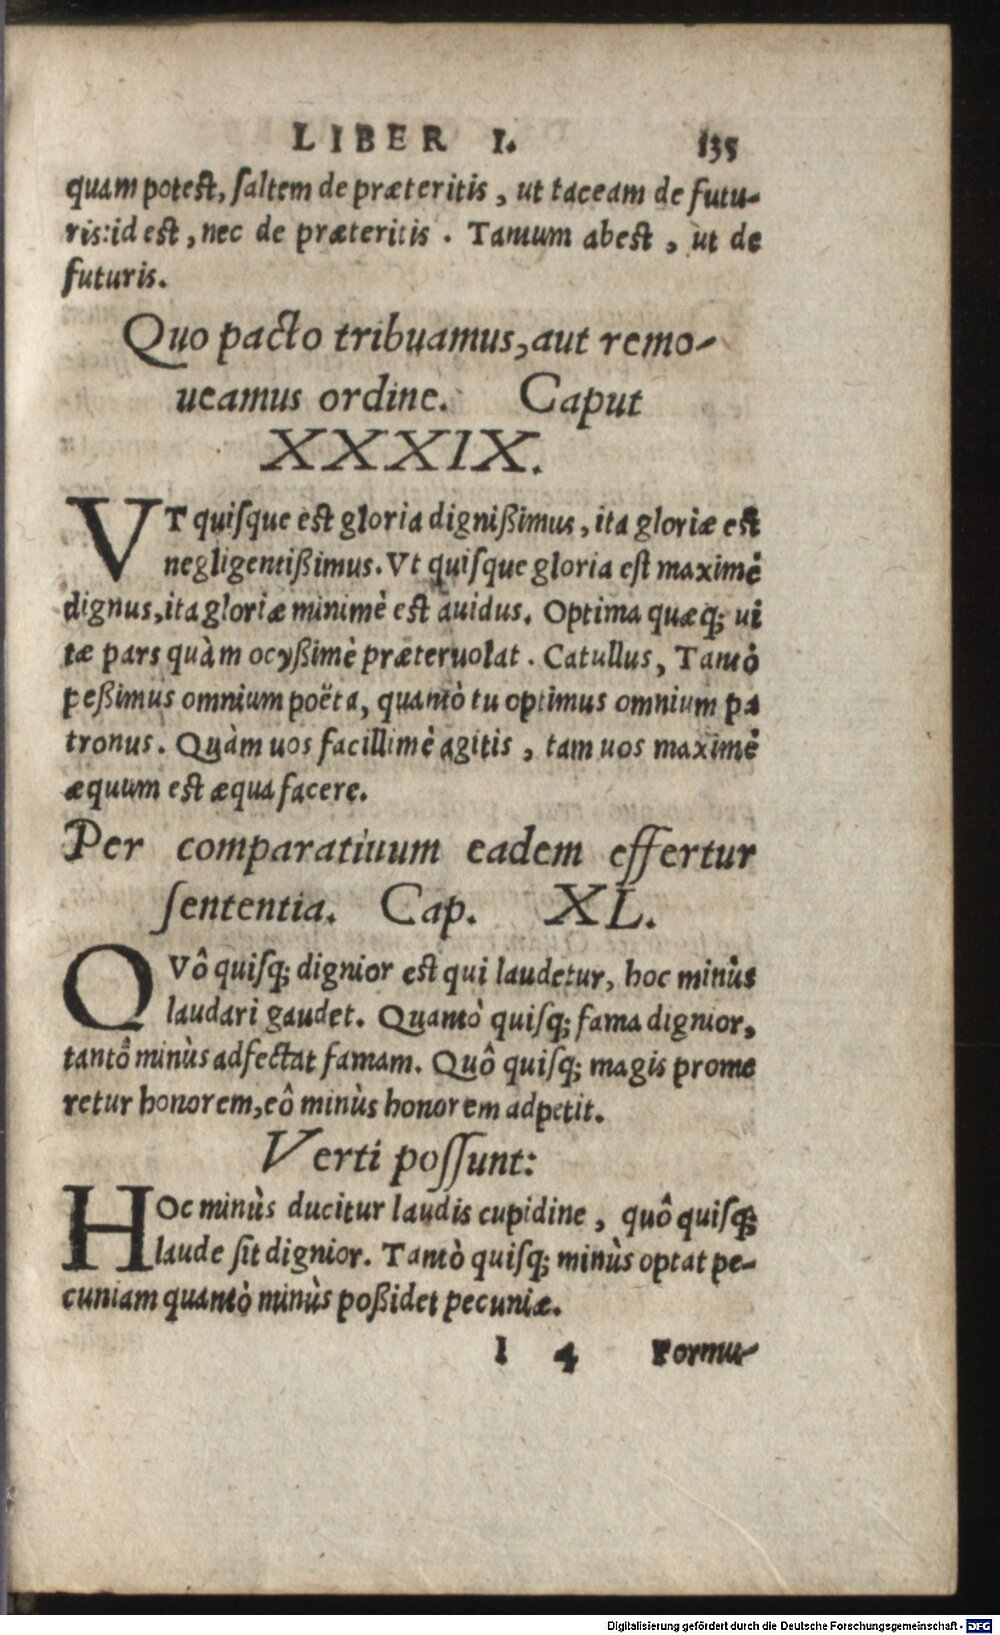 LIBER I. 135
quam potest, ſaltem de præteritis, ut taceam de futu-
ris: id est, nec de præteritis. Tantum abest, ut de
futuris.
Quo pacto tribuamus, aut remo-
ueamus ordine. Caput
XXXIX.
VT quiſque est gloria dignißimus, ita gloriæ est
negligentißimus. Vt quiſque gloria est maximè
dignus, ita gloriæ minimè est auidus. Optima quæq; ui
tæ pars quàm ocyßimè præteruolat. Catullus, Tantò
peßimus omnium poëta, quantò tu optimus omnium pa
tronus. Quàm uos facillimè agitis, tam uos maximè
æquum est æqua facere.
Per comparatiuum eadem effertur
ſententia. Cap. XL.
QVô quiſq; dignior est qui laudetur, hoc minùs
laudari gaudet. Quantò quiſq; fama dignior,
tantò minùs adfectat famam. Quô quiſq; magis prome
retur honorem, eô minùs honorem adpetit.
Verti poſſunt:
HOc minùs ducitur laudis cupidine, quô quiſq;
laude ſit dignior. Tantò quiſq; minùs optat pe-
cuniam quantò minùs poßidet pecuniæ.
I 4 Formu-
Digitalisierung gefördert durch die Deutsche Forschungsgemeinschaft - DFG